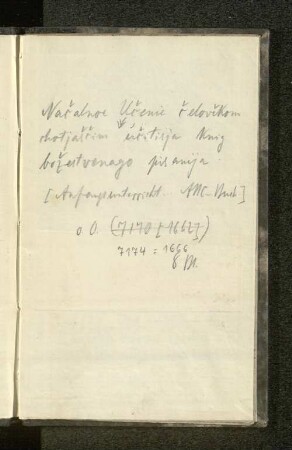 Načalnoe Učenie čelověkom
chotjaščim učitisja knig
božestvenago pisanija
[Anfangsunterricht. ABC-Buch]
o O. (7170 [1662])
7174 = 1666
8 Bl.